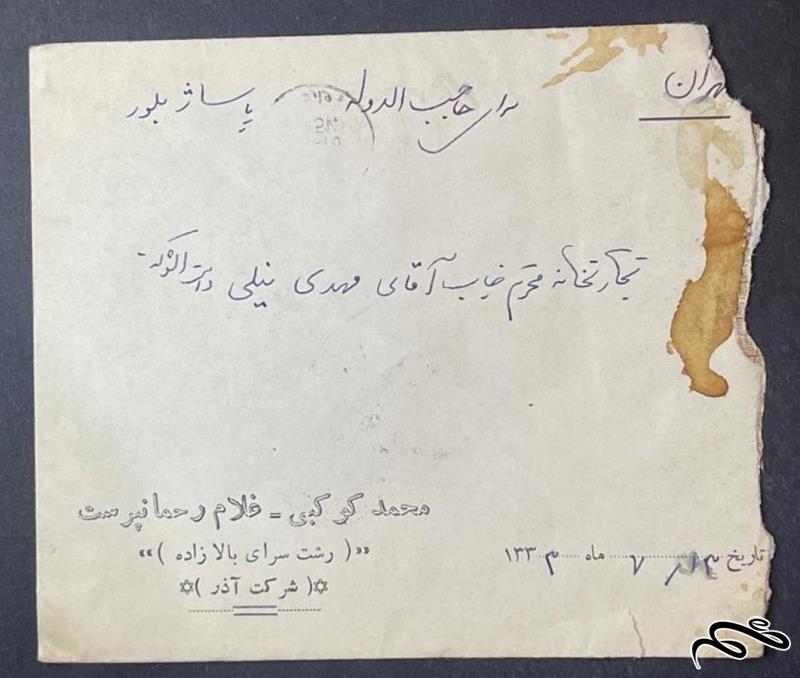 تهران
سرای حاجب الدوله پاساژ بلور
تجارتخانه محترم جناب آقای مهدی نیلی دامت شوکته
محمد کوکبی = غلام رحمانپرست
«( رشت سرای بالازاده )»
✡( شرکت آذر )✡
تاریخ ماه ۷ ۱۳۳۳